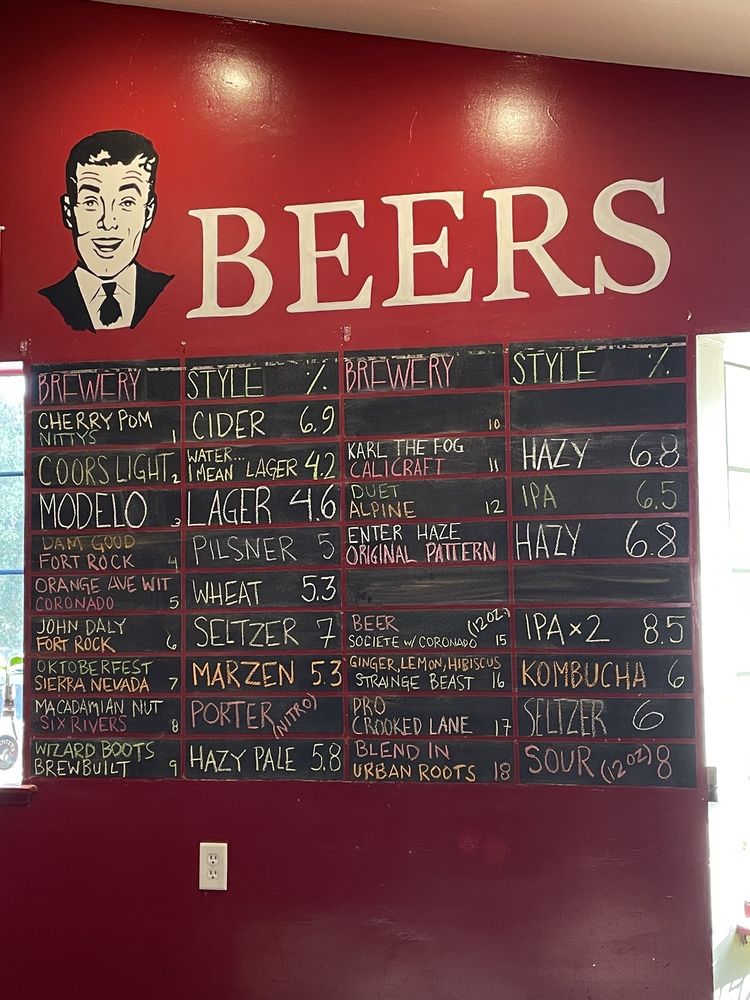 BEERS
BREWERY STYLE %
CHERRY POM
NITTYS 1 CIDER 6.9
COORS LIGHT 2 WATER...
I MEAN LAGER 4.2
MODELO 3 LAGER 4.6
DAM GOOD
FORT ROCK 4 PILSNER 5
ORANGE AVE WIT
CORONADO 5 WHEAT 5.3
JOHN DALY
FORT ROCK 6 SELTZER 7
OKTOBERFEST
SIERRA NEVADA 7 MARZEN 5.3
MACADAMIAN NUT
SIX RIVERS 8 PORTER (NITRO)
WIZARD BOOTS
BREWBUILT 9 HAZY PALE 5.8
BREWERY STYLE %
10
KARL THE FOG
CALICRAFT 11 HAZY 6.8
DUET
ALPINE 12 IPA 6.5
ENTER HAZE
ORIGINAL PATTERN HAZY 6.8
BEER (12OZ)
SOCIETE W/ CORONADO 15 IPA×2 8.5
GINGER, LEMON, HIBISCUS
STRAINGE BEAST 16 KOMBUCHA 6
PRO
CROOKED LANE 17 SELTZER 6
BLEND IN
URBAN ROOTS 18 SOUR (12OZ) 8